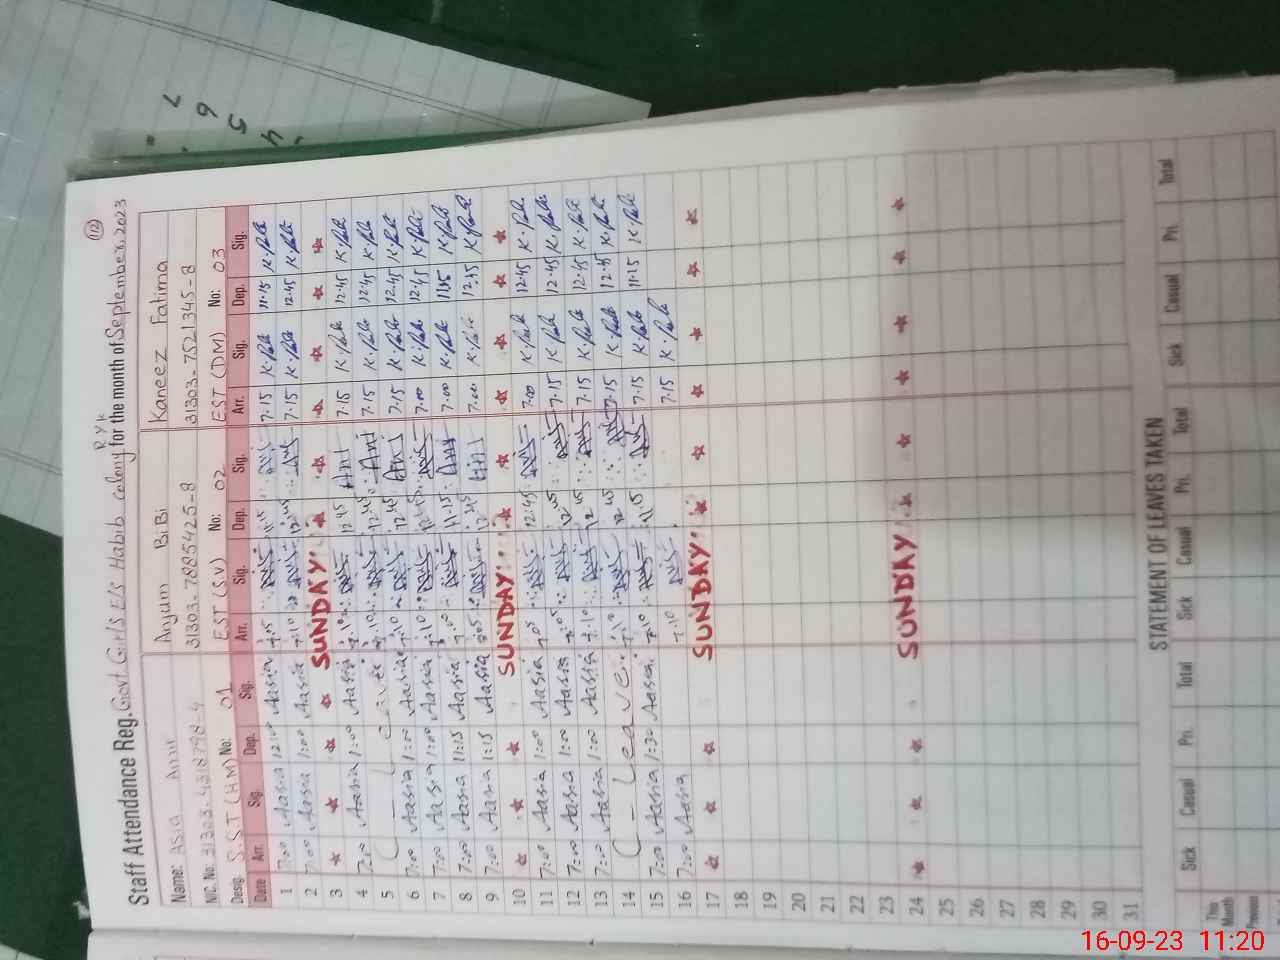 112
Staff Attendance Reg. Govt. Girls E/S Habib Colony RYK for the month of September 2023
Name: Asia Amir Anjum BiBi Kaneez Fatima
NIC. No. 31303-7885425-8 31303-7521345-8
Desig. S.S.T (H.M) No: 01 EST (SV) No: 02 EST (DM) No: 03
Date Arr. Sig. Dep. Sig. Arr. Sig. Dep. Sig. Arr. Sig. Dep. Sig.
1 7:00 Aasia 12:00 Aasia 7.05 11.15 7.15 11.15
2 7:00 Aasia 1:00 Aasia 7.10 12.45 7.15 12.45
3 SUNDAY
4 7:00 Aasia 1:00 Aasia 7.10 12.45 7.15 12.45
5 C - Leave 7.10 12.45 7.15 12.45
6 7:00 Aasia 1:00 Aasia 7.10 12.45 7.15 12.45
7 7:00 Aasia 1:00 Aasia 7.10 12.45 7.00 12.45
8 7:00 Aasia 11:15 Aasia 7.00 11.15 7.00 11.15
9 7:00 Aasia 1:15 Aasia 7.05 12.45 7.00 12.15
10 SUNDAY
11 7:00 Aasia 1:00 Aasia 7.05 12:45 7.00 12.45
12 7:00 Aasia 1:00 Aasia 7.05 12.45 7.15 12.45
13 7:00 Aasia 1:00 Aasia 7.10 12.45 7.15 12.45
14 C - Leave 7.10 12.45 7.15 12.45
15 7:00 Aasia 1:30 Aasia 7.10 11.15 7.15 11.15
16 7:00 Aasia 7.10 7.15
17 SUNDAY
18
19
20
21
22
23
24 SUNDAY
25
26
27
28
29
30
31
STATEMENT OF LEAVES TAKEN
Sick Casual Pri. Total Sick Casual Pri. Total Sick Casual Pri. Total
This Month
Previous
7
6
5
4
16-09-23 11:20